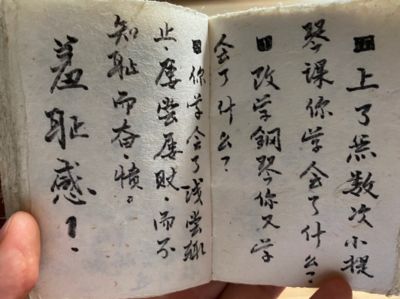 上了无数次小提
琴课你学会了什么？
改学鋼琴你又学
会了什么？
你学会了浅尝辄
止·屡尝屡败·而不
知耻而奋·愤。
羞耻感！